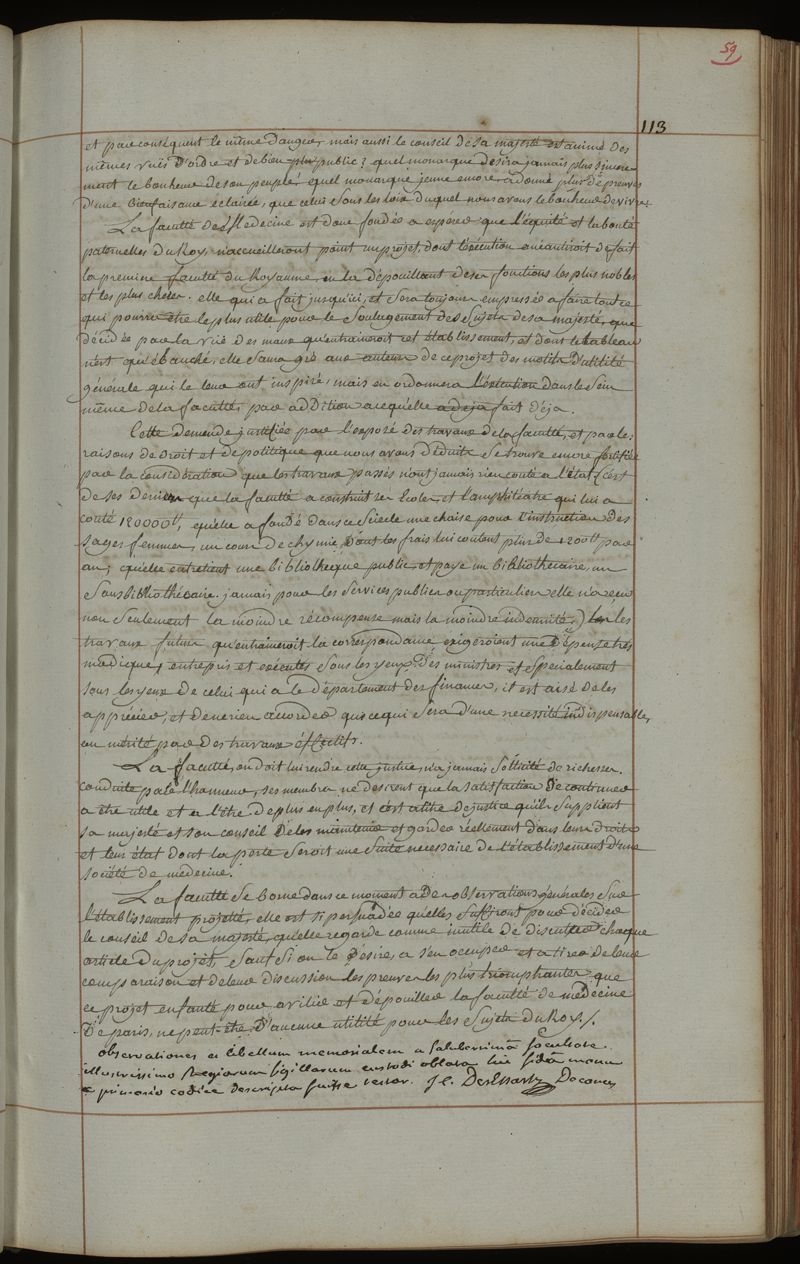 59
113
et par conséquent le même danger, mais aussi le conseil de sa majesté est animé des
mêmes vuës d'ordre et de bien public; quel monarque desira jamais plus sincere-
ment le bonheur de son peuple, quel monarque jeune encore, a donné plus d'épreuves
d'une bienfaisance éclairée, que celui sous les loix duquel nous avons le bonheur de vivre.
La faculté de Medecine est donc fondée a espérer que l'équité et la bonté
paternelles du Roy, n'accueilleront point un projet, dont l'exécution anéantiroit de fait
la premiere faculté du Royaume, en la dépouillant de ses fonctions les plus nobles
et les plus cheres. elle qui a fait jusqu'ici, et sera toujours empressée a faire tout ce
qui pourra être le plus utile pour le Soulagement des Sujets de sa majesté, que
décidée par la vuë des maux qu'entraineroit cet établissement, et dont le tableau
n'est qu'ébauché, elle saura gré aux auteurs de ce projet des motifs d'utilité
générale qui le leur ont inspiré, mais en ordonnera l'exécution dans le sein
même de la faculté, par addition a ce qu'elle a deja fait déja.
Cette demande justifiée par l'exposé des travaux de la faculté, et par les
raisons de droit et de politique que nous avons déduites se trouve encore fortifiée
par la considération que les travaux passés n'ont jamais rien couté a l'état (c'est
de ses deniers que la faculté a construit ses Ecoles et l'amphitéatre qui lui a
couté 120000ₗₗ, qu'elle a fondé dans ce siecle une chaise pour l'instruction des
sages femmes, un cours de chymie, dont les frais lui coutent plus de 1200ₗₗ par
an; qu'elle entretient une bibliotheque public, et paye un bibliothecaire, un
sousbibliothécaire. jamais pour les services publics ou particuliers elle n'a reçu
non seulement la moindre récompense mais la moindre indemnité,) les
travaux futurs qu'entraineroit la correspondance exigeroient une dépense très
modique, entrepris et exécutés sous les yeux des ministres et specialement
sous les yeux de celui qui a le département des finances, il est aisé de les
apprécier, et de ne rien accorder que ce qui sera d'une necessité indispensable,
ou mérité par des travaux effectifs.
La faculté, on doit lui rendre cette justice, n'a jamais sollicité de richesses.
conduite par l'honneur, ses membres ne desirent que la satisfaction de continuer
a être utile et a l'être de plus en plus, et c'est a titre de justice qu'ils supplient
sa majesté et son conseil de les maintenir et garder réellement dans leurs droits
et leur état dont la perte seroit une suite necessaire de l'établissement d'une
société de médecine.
La faculté se borne dans ce moment a des observations générales sur
l'établissement projetté, elle est si persuadée qu'elles suffiront pour décider
le conseil de sa majesté, qu'elle regarde comme inutile de discuter chaque
article du projet, sauf si on le desire, a s'en occuper et a tirer de leur
comparaison et de leur discussion les preuves les plus triomphantes que
ce projet enfanté pour avilir et dépouiller la faculté de médecine
de paris, ne peut être d'aucune utilité pour les Sujets du Roy./.
observationes et libellum memorialem a saluberrimâ facultate
illustrissimo Regiorum sigillorum custodi oblata hic fidâ manu
e primario codice descripta fuisse testor. J. C. DesEssartz Decanus